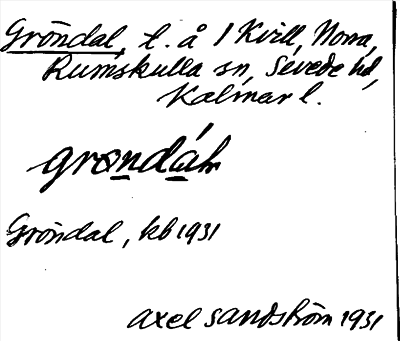 Gröndal, l. å 1 Kvill, Norra,
Rumskulla sn, Sevede hd,
Kalmar l.
grondáln
Gröndal, kb 1931
Axel Sandström 1931